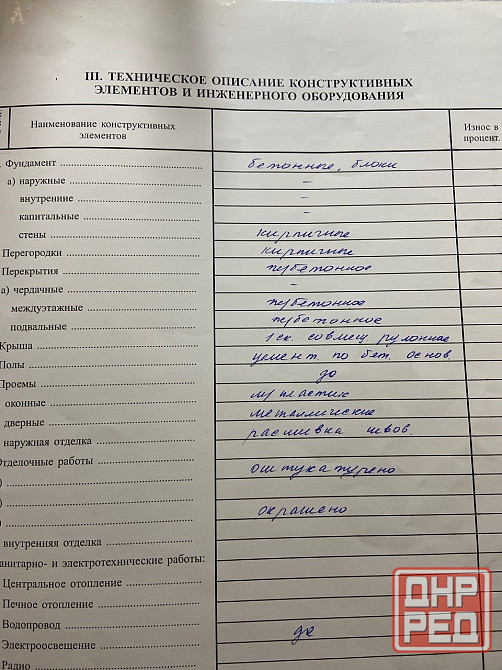 III. ТЕХНИЧЕСКОЕ ОПИСАНИЕ КОНСТРУКТИВНЫХ
ЭЛЕМЕНТОВ И ИНЖЕНЕРНОГО ОБОРУДОВАНИЯ
Наименование конструктивных
элементов
Износ в
процент.
Фундамент бетонные, блоки
а) наружные –
внутренние –
капитальные –
стены кирпичные
Перегородки кирпичные
Перекрытия ж/бетонное
а) чердачные –
междуэтажные ж/бетонное
подвальные ж/бетонное
Крыша 1 ск. совмещ рулонная
Полы цемент. по бет. основ.
Проемы до
оконные м/пластик
дверные металлические
наружная отделка расшивка швов.
Отделочные работы оштукатурено
)
) окрашено
)
внутренняя отделка
санитарно- и электротехнические работы:
Центральное отопление
Печное отопление
Водопровод да
Электроосвещение
Радио
ДНР
РЕД